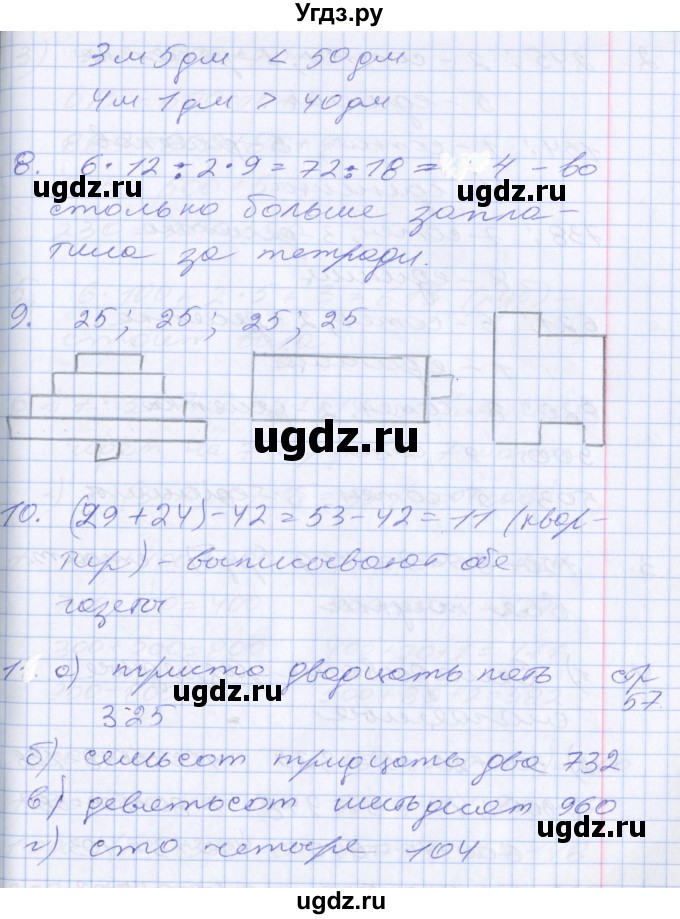 Угдз.ру
3м 5дм < 50дм
4м 1дм > 40дм
8. 6·12 : 2·9 = 72:18 = 4 – во
ugdz.ru ugdz.ru
столько больше запла-
тила за тетради.
9. 25; 25; 25; 25
ugdz.ru
ugdz.ru
10. (29+24)-42=53-42=11 (квар-
тир) – выписывают обе
газеты
1. а) триста двадцать пять стр
57
325
ugdz.ru
б) семьсот тридцать два 732
в) девятьсот шестьдесят 960
г) сто четыре 104
ugdz.ru ugdz.ru